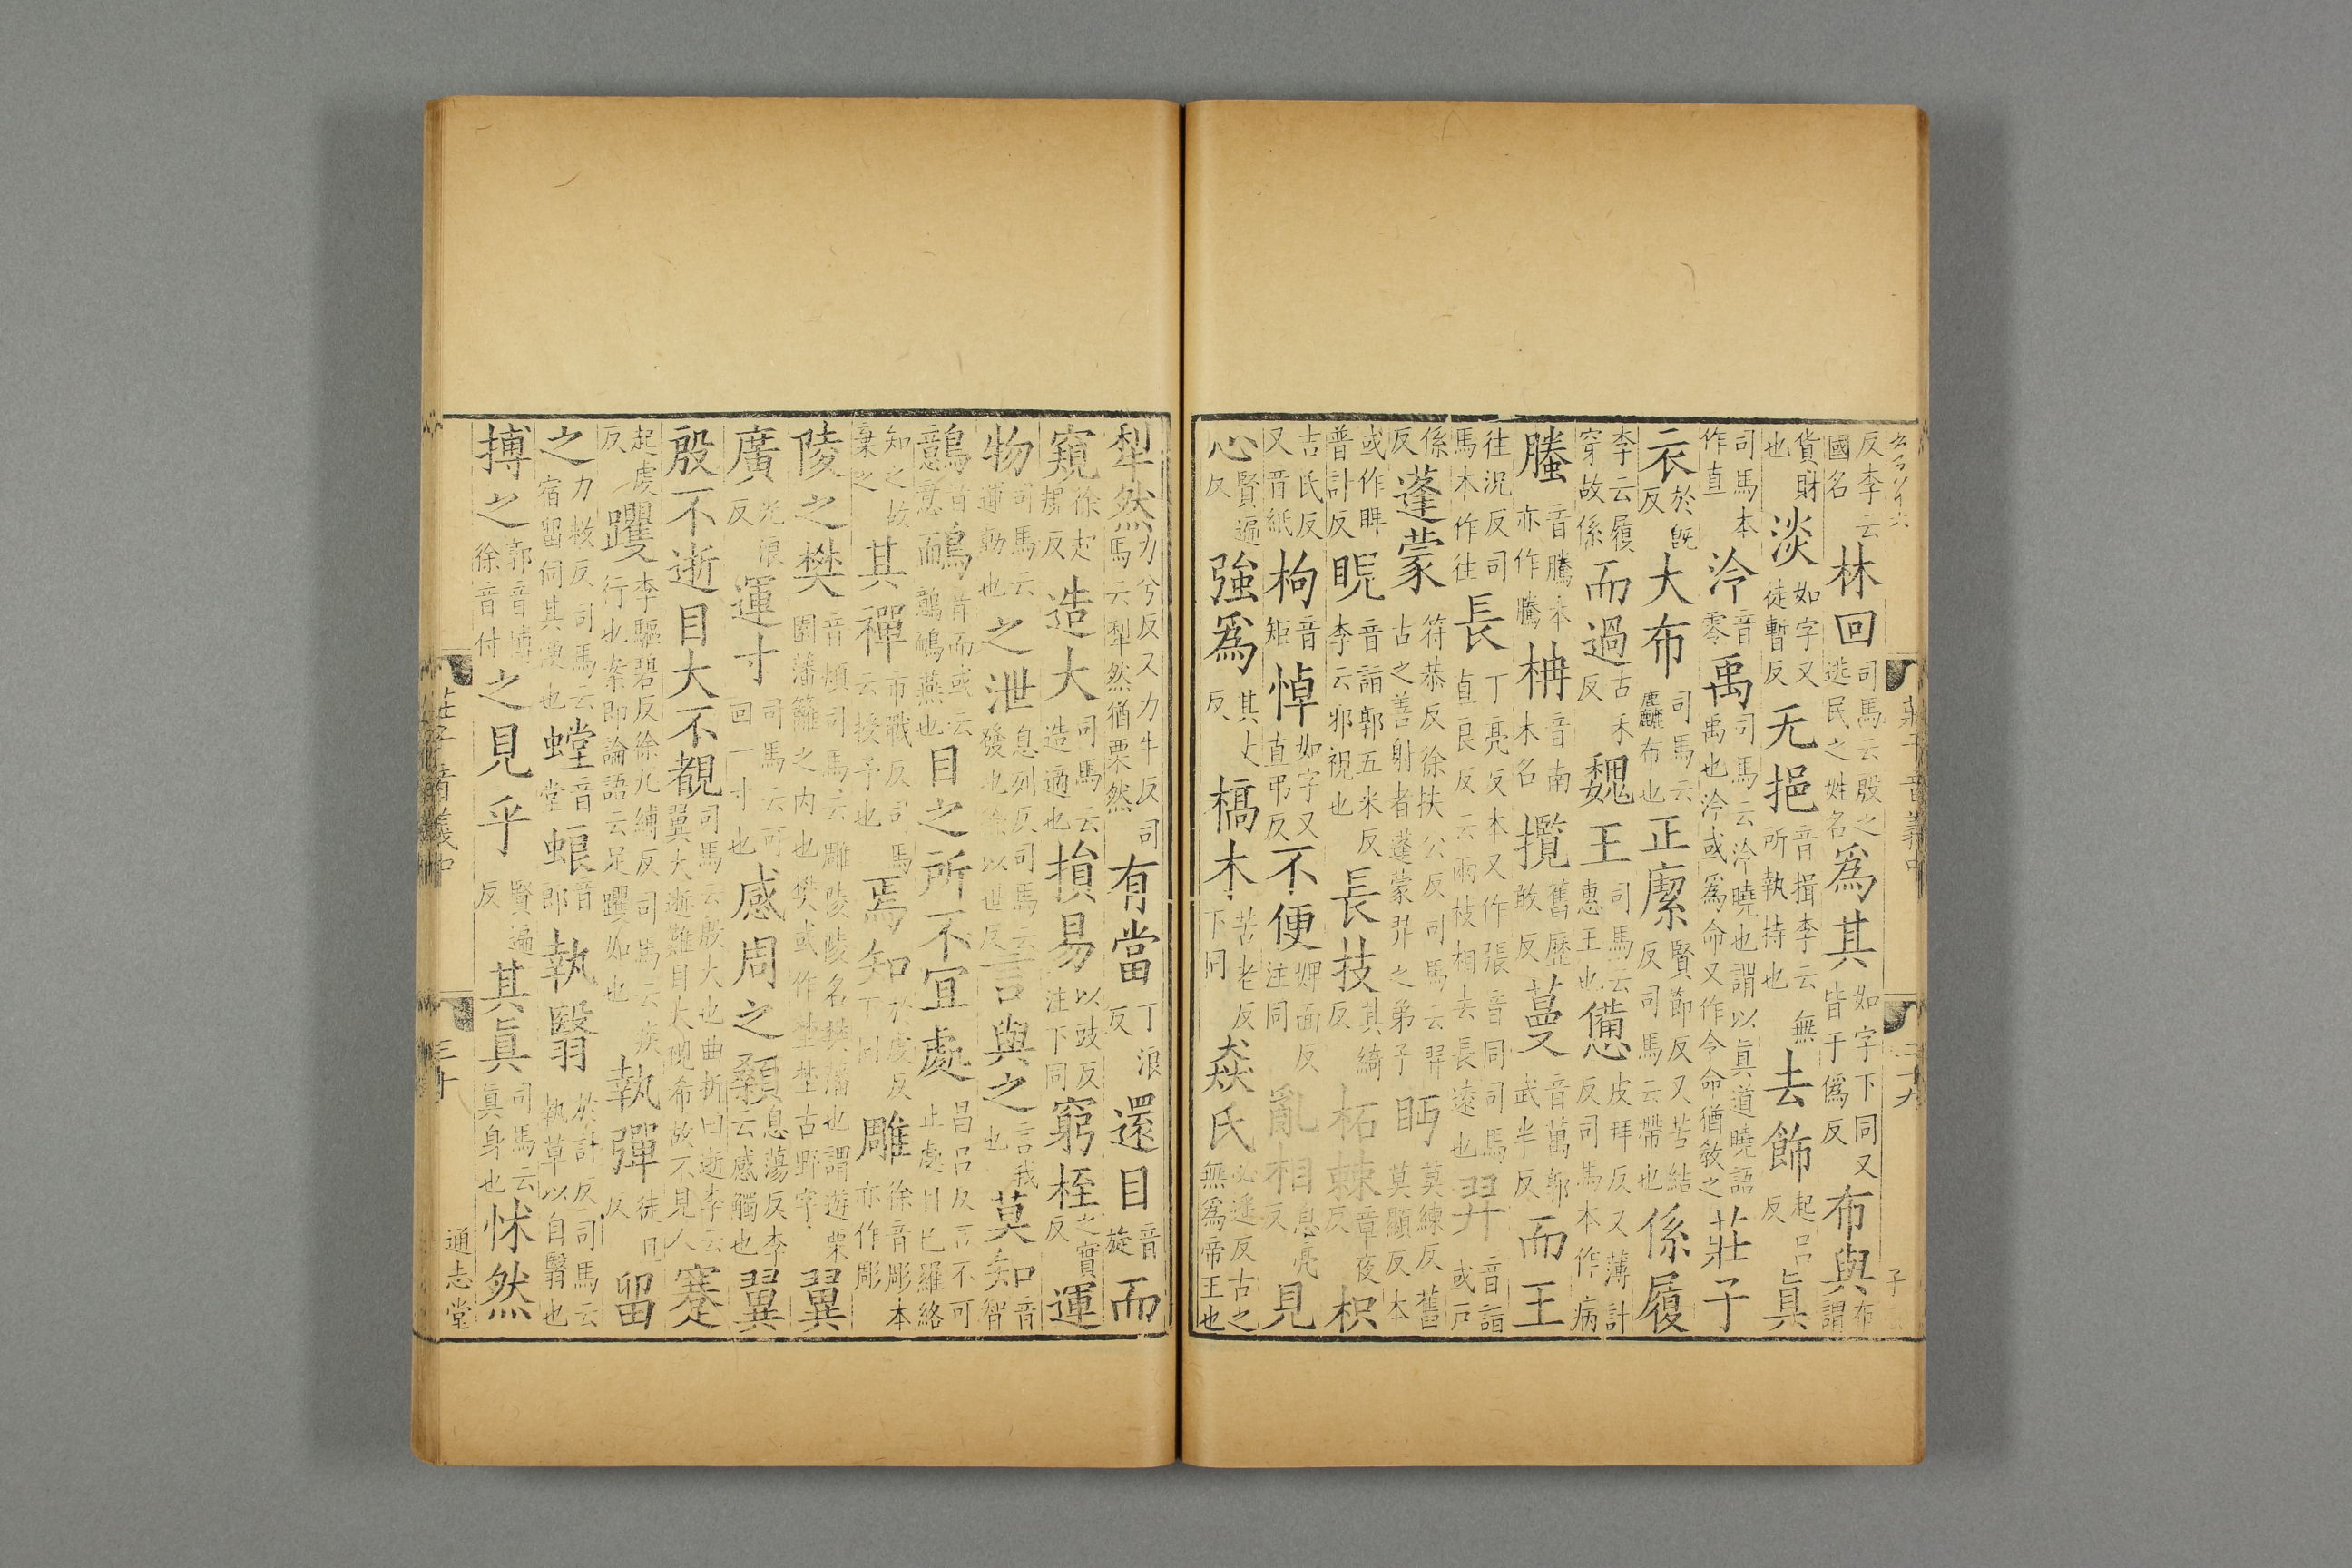 反李云國名林回司馬云殷之逃民之姓名爲其如字下同又皆于僞反布與布謂
貨財也淡如字又徒暫反无挹音揖李云無所執持也去飾起呂反眞
司馬本作直泠音零禹司馬云泠曉也謂以眞道曉語禹也泠或爲命又作令命猶敎之莊子
衣於旣反大布司馬云麤布也正㡛賢節反又苦結反司馬云帶也係履
李云履穿故係而過古禾反魏王司馬云惠王也憊皮拜反又薄計反司馬本作病
騰音騰本亦作騰枏音南木名攬舊歷敢反蔓音萬郭武半反而王
往況反司馬本作往長丁亮反本又作張音同司馬直良反云兩枝相去長遠也羿音詣或戶
係反蓬蒙符恭反徐扶公反司馬云羿古之善射者蓬蒙羿之弟子眄莫練反舊莫顯反本
或作睥普計反睨音詣郭五米反李云邪視也長技其綺反柘棘章夜反枳
吉氏反又音紙枸音矩悼如字又直弔反不便婢面反注同亂相息亮反見
心賢遍反強爲其丈反槁木苦老反下同猋氏必遙反古之無爲帝王也
莊子音義中 二十九
犁然力兮反又力牛反司馬云犁然猶栗然有當丁浪反還目音旋而
窺徐起規反造大司馬云造適也損易以豉反注下同窮桎之實反運
物司馬云運動也之泄息列反司馬云發也徐以世反言與之言我也莫知音智
鷾音意鴯音而或云鷾鴯燕也目之所不宜處昌呂反言不可止處目已羅絡
知之故棄之其禪市戰反司馬云授予也焉知於虔反下同雕徐音彫本亦作彫
陵之樊音煩司馬云雕陵陵名樊藩也謂遊栗園藩籬之內也樊或作埜埜古野字翼
廣光浪反運寸司馬云可回一寸也感周之顙息蕩反李云感觸也翼
殷不逝目大不覩司馬云殷大也曲折曰逝李云翼大逝難目大視希故不見人蹇
起虔反躩李驅碧反徐九縛反司馬云疾行也案即論語云足躩如也執彈徒旦反留
之力救反司馬云宿留伺其便也螳音堂蜋音郎執翳於計反司馬云執草以自翳也
搏之郭音博徐音付之見乎賢遍反其眞司馬云眞身也怵然
莊子音義中 三十 通志堂